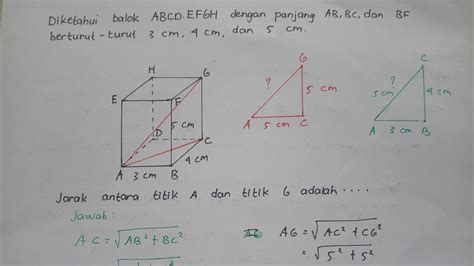 Diketahui balok ABCD.EFGH dengan panjang AB, BC, dan BF
berturut-turut 3 cm, 4 cm, dan 5 cm.
H
G
E
F
5 cm
D
C
4 cm
A 3 cm B
G
?
5 cm
A 5 cm C
C
5 cm ?
4 cm
A 3 cm B
Jarak antara titik A dan titik G adalah ....
Jawab:
AC = √AB² + BC²
AG = √AC² + CG²
= √5² + 5²